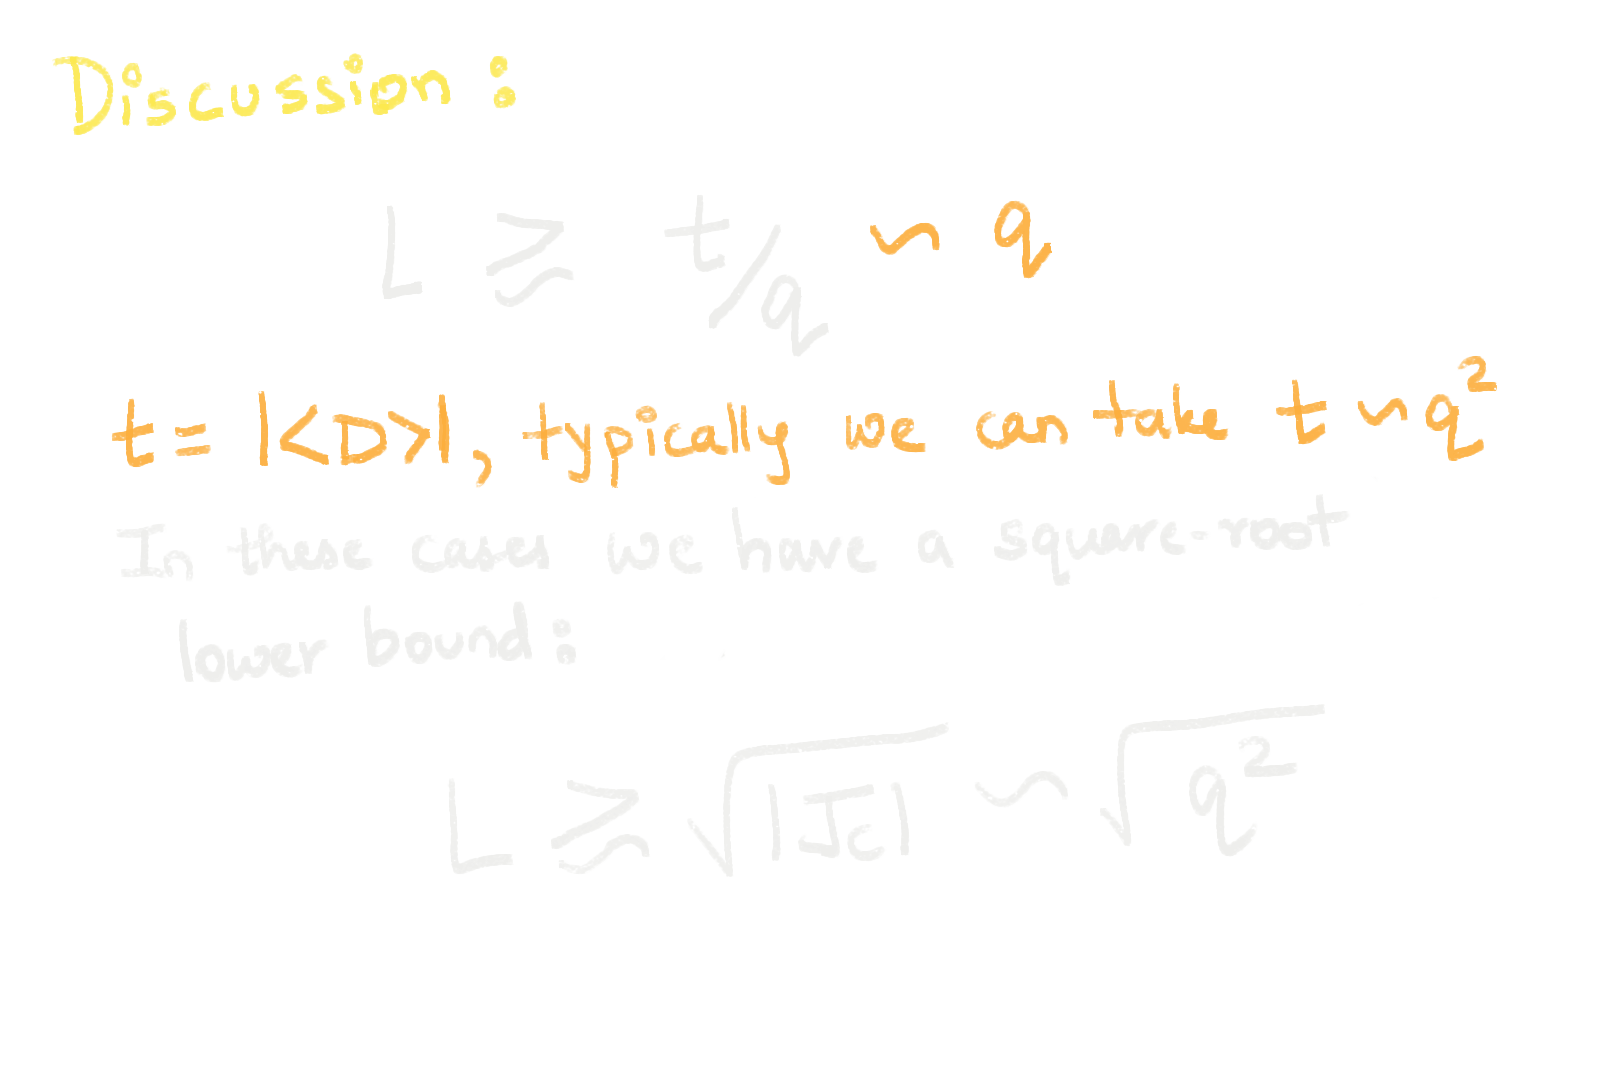 Discussion:
L ≳ t/q ~ q
t = |<D>|, typically we can take t ~ q²
In these cases we have a square-root
lower bound:
L ≳ √|J_C| ~ √q²